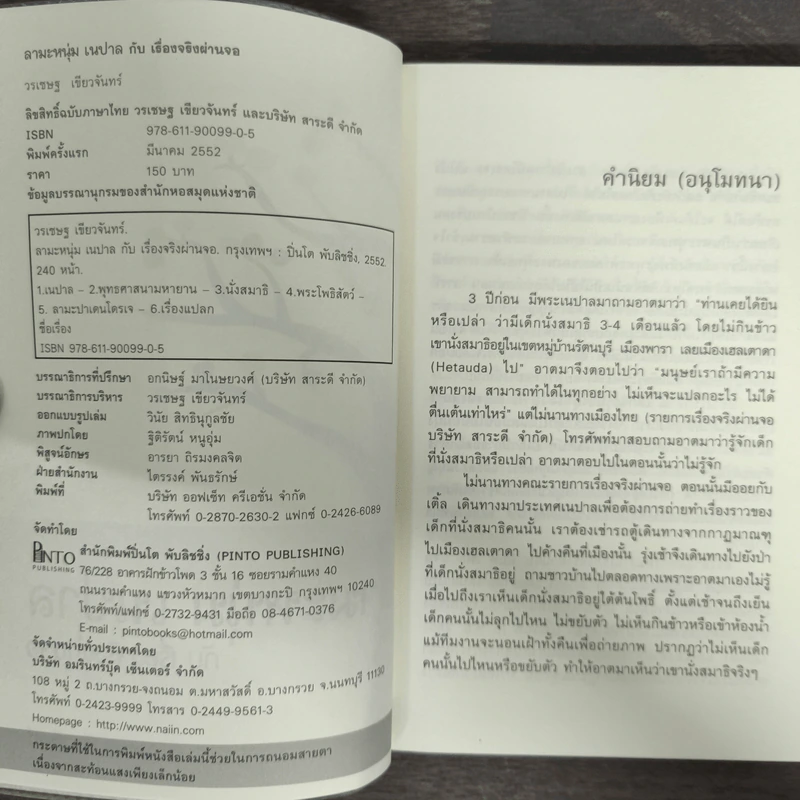 ลามะหนุ่ม เนปาล กับ เรื่องจริงผ่านจอ
วรเชษฐ เขียวจันทร์
ลิขสิทธิ์ฉบับภาษาไทย วรเชษฐ เขียวจันทร์ และบริษัท สาระดี จำกัด
ISBN 978-611-90099-0-5
พิมพ์ครั้งแรก มีนาคม 2552
ราคา 150 บาท
ข้อมูลบรรณานุกรมของสำนักหอสมุดแห่งชาติ
วรเชษฐ เขียวจันทร์.
ลามะหนุ่ม เนปาล กับ เรื่องจริงผ่านจอ. กรุงเทพฯ : ปิ่นโต พับลิชชิ่ง, 2552.
240 หน้า.
1.เนปาล - 2.พุทธศาสนามหายาน - 3.นั่งสมาธิ - 4.พระโพธิสัตว์ -
5. ลามะปาเดนโดรเจ - 6.เรื่องแปลก
ชื่อเรื่อง
ISBN 978-611-90099-0-5
บรรณาธิการที่ปรึกษา อกนิษฐ์ มาโนษยวงศ์ (บริษัท สาระดี จำกัด)
บรรณาธิการบริหาร วรเชษฐ เขียวจันทร์
ออกแบบรูปเล่ม วินัย สิทธินุกูลชัย
ภาพปกโดย ฐิติรัตน์ หนูอุ่ม
พิสูจน์อักษร อารยา ถิรมงคลจิต
ฝ่ายสำนักงาน ไตรรงค์ พันธรักษ์
พิมพ์ที่ บริษัท ออฟเซ็ท ครีเอชั่น จำกัด
โทรศัพท์ 0-2870-2630-2 แฟกซ์ 0-2426-6089
จัดทำโดย
PINTO PUBLISHING
สำนักพิมพ์ปิ่นโต พับลิชชิ่ง (PINTO PUBLISHING)
76/228 อาคารฝักข้าวโพด 3 ชั้น 16 ซอยรามคำแหง 40
ถนนรามคำแหง แขวงหัวหมาก เขตบางกะปิ กรุงเทพฯ 10240
โทรศัพท์/แฟกซ์ 0-2732-9431 มือถือ 08-4671-0376
E-mail : pintobooks@hotmail.com
จัดจำหน่ายทั่วประเทศโดย
บริษัท อมรินทร์บุ๊ค เซ็นเตอร์ จำกัด
108 หมู่ 2 ถ.บางกรวย-จงถนอม ต.มหาสวัสดิ์ อ.บางกรวย จ.นนทบุรี 11130
โทรศัพท์ 0-2423-9999 โทรสาร 0-2449-9561-3
Homepage : http://www.naiin.com
กระดาษที่ใช้ในการพิมพ์หนังสือเล่มนี้ช่วยในการถนอมสายตา
เนื่องจากสะท้อนแสงเพียงเล็กน้อย
คำนิยม (อนุโมทนา)
3 ปีก่อน มีพระเนปาลมาถามอาตมาว่า "ท่านเคยได้ยิน
หรือเปล่า ว่ามีเด็กนั่งสมาธิ 3-4 เดือนแล้ว โดยไม่กินข้าว
เขานั่งสมาธิอยู่ในเขตหมู่บ้านรัตนบุรี เมืองพารา เลยเมืองเฮลเตาดา
(Hetauda) ไป" อาตมาจึงตอบไปว่า "มนุษย์เราถ้ามีความ
พยายาม สามารถทำได้ในทุกอย่าง ไม่เห็นจะแปลกอะไร ไม่ได้
ตื่นเต้นเท่าไหร่" แต่ไม่นานทางเมืองไทย (รายการเรื่องจริงผ่านจอ
บริษัท สาระดี จำกัด) โทรศัพท์มาสอบถามอาตมาว่ารู้จักเด็ก
ที่นั่งสมาธิหรือเปล่า อาตมาตอบไปในตอนนั้นว่าไม่รู้จัก
ไม่นานทางคณะรายการเรื่องจริงผ่านจอ ตอนนั้นมีออยกับ
เติ้ล เดินทางมาประเทศเนปาลเพื่อต้องการถ่ายทำเรื่องราวของ
เด็กที่นั่งสมาธิคนนั้น เราต้องเช่ารถตู้เดินทางจากกาฏมาณฑุ
ไปเมืองเฮลเตาดา ไปค้างคืนที่เมืองนั้น รุ่งเช้าจึงเดินทางไปยังป่า
ที่เด็กนั่งสมาธิอยู่ ถามชาวบ้านไปตลอดทางเพราะอาตมาเองไม่รู้
เมื่อไปถึงเราเห็นเด็กนั่งสมาธิอยู่ใต้ต้นโพธิ์ ตั้งแต่เช้าจนถึงเย็น
เด็กคนนั้นไม่ลุกไปไหน ไม่ขยับตัว ไม่เห็นกินข้าวหรือเข้าห้องน้ำ
แม้ทีมงานจะนอนเฝ้าทั้งคืนเพื่อถ่ายภาพ ปรากฏว่าไม่เห็นเด็ก
คนนั้นไปไหนหรือขยับตัว ทำให้อาตมาเห็นว่าเขานั่งสมาธิจริงๆ